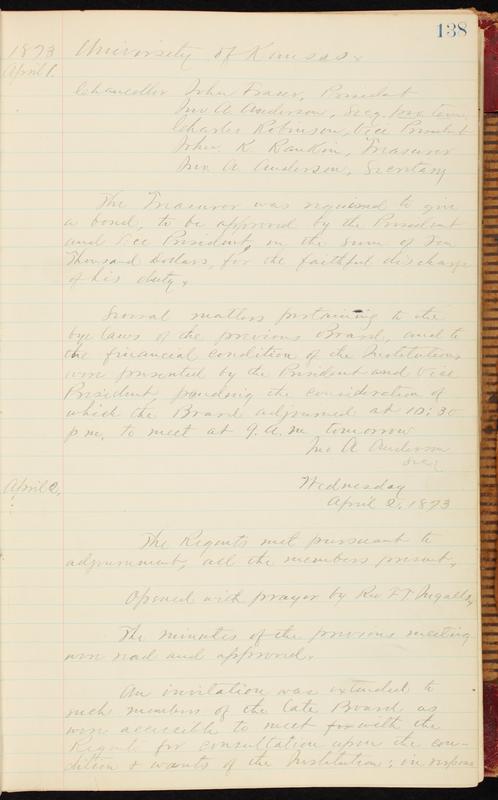 138
1873 University of Kansas.
April 1.
Chancellor John Fraser, President
Jno A. Anderson, Secy pro tem
Charles Robinson, Vice President
John K. Rankin, Treasurer
Jno A. Anderson, Secretary
The Treasurer was required to give
a bond, to be approved by the President
and Vice President, in the sum of Ten
Thousand Dollars, for the faithful discharge
of his duty.
Several matters pertaining to the
bye laws of the previous Board, and to
the financial condition of the Institutions
were presented by the President and Vice
President, pending the consideration of
which the Board adjourned at 10:30
p.m. to meet at 9. A.M. tomorrow
Jno A Anderson
Secy
April 2. Wednesday
April 2, 1873
The Regents met pursuant to
adjournment, all the members present.
Opened with prayer by Rev F T Ingalls,
The minutes of the previous meeting
were read and approved.
An invitation was extended to
such members of the late Board as
were accessible to meet with the
Regents for consultation upon the con-
dition & wants of the Institution; in response